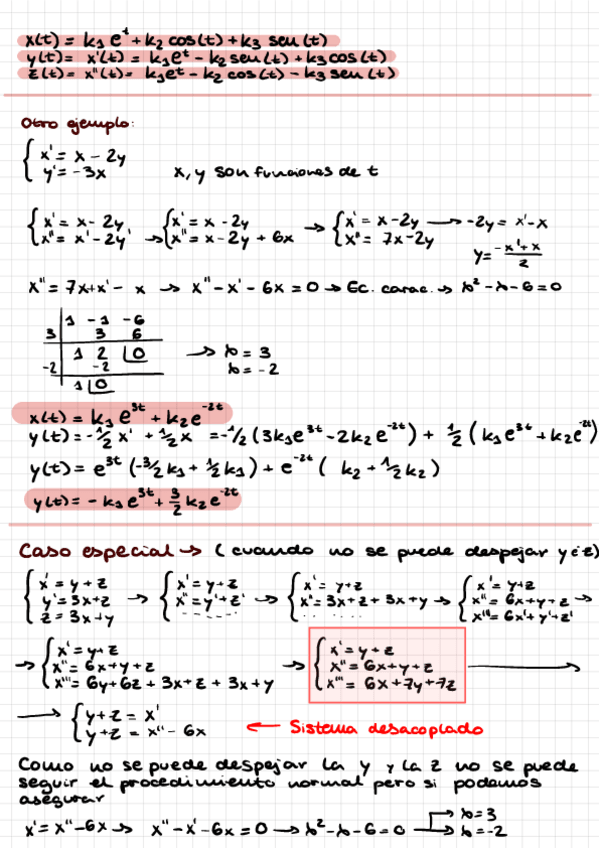 x(t) = k₁ eᵗ + k₂ cos(t) + k₃ sen(t)
y(t) = x'(t) = k₁eᵗ - k₂ sen(t) + k₃ cos(t)
z(t) = x''(t) = k₁eᵗ - k₂ cos(t) - k₃ sen(t)
Otro ejemplo:
{ x' = x - 2y
y' = -3x x, y son funciones de t
{ x' = x - 2y → { x' = x - 2y → { x' = x - 2y → -2y = x' - x
x'' = x' - 2y' x'' = x - 2y + 6x x'' = 7x - 2y y = (-x' + x)/2
x'' = 7x + x' - x → x'' - x' - 6x = 0 → Ec. carac. → λ² - λ - 6 = 0
1 -1 -6
3 3 6
1 2 0 → λ = 3
-2 -2 λ = -2
1 0
x(t) = k₁ e³ᵗ + k₂ e⁻²ᵗ
y(t) = -½ x' + ½ x = -½ (3k₁e³ᵗ - 2k₂e⁻²ᵗ) + ½ (k₁e³ᵗ + k₂e⁻²ᵗ)
y(t) = e³ᵗ (-3/2 k₁ + ½ k₁) + e⁻²ᵗ ( k₂ + ½ k₂)
y(t) = - k₁ e³ᵗ + 3/2 k₂ e⁻²ᵗ
Caso especial → (cuando no se puede despejar y i z)
{ x' = y + z → { x' = y + z → { x' = y + z → { x' = y + z
y' = 3x + z x'' = y' + z' x'' = 3x + z + 3x + y x'' = 6x + y + z →
z = 3x + y ----- ----- x''' = 6x' + y' + z'
→ { x' = y + z → { x' = y + z →
x'' = 6x + y + z x'' = 6x + y + z
x''' = 6y + 6z + 3x + z + 3x + y x''' = 6x + 7y + 7z
→ { y + z = x'
y + z = x'' - 6x ← Sistema desacoplado
Como no se puede despejar la y y la z no se puede
seguir el procedimiento normal pero si podemos
asegurar
x' = x'' - 6x → x'' - x' - 6x = 0 → λ² - λ - 6 = 0 → λ = 3
→ λ = -2